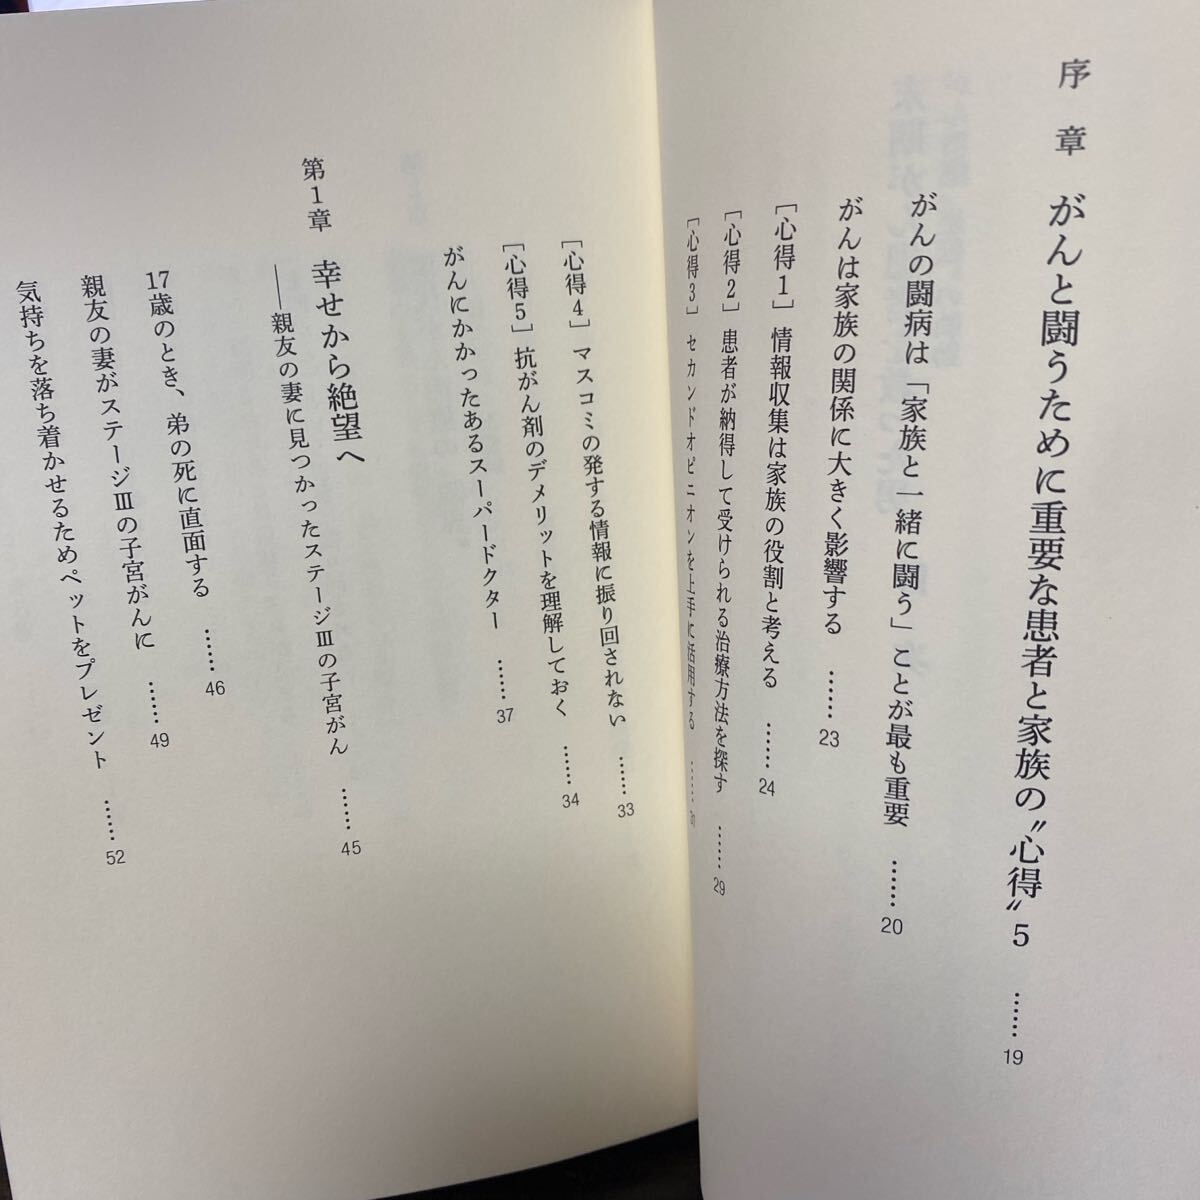 序章 がんと闘うために重要な患者と家族の〝心得〟5 …… 19
がんの闘病は「家族と一緒に闘う」ことが最も重要 …… 20
がんは家族の関係に大きく影響する …… 23
[心得1] 情報収集は家族の役割と考える …… 24
[心得2] 患者が納得して受けられる治療方法を探す …… 29
[心得3] セカンドオピニオンを上手に活用する ……
[心得4] マスコミの発する情報に振り回されない …… 33
[心得5] 抗がん剤のデメリットを理解しておく …… 34
がんにかかったあるスーパードクター …… 37
第1章 幸せから絶望へ
——親友の妻に見つかったステージⅢの子宮がん …… 45
17歳のとき、弟の死に直面する …… 46
親友の妻がステージⅢの子宮がんに …… 49
気持ちを落ち着かせるためペットをプレゼント …… 52